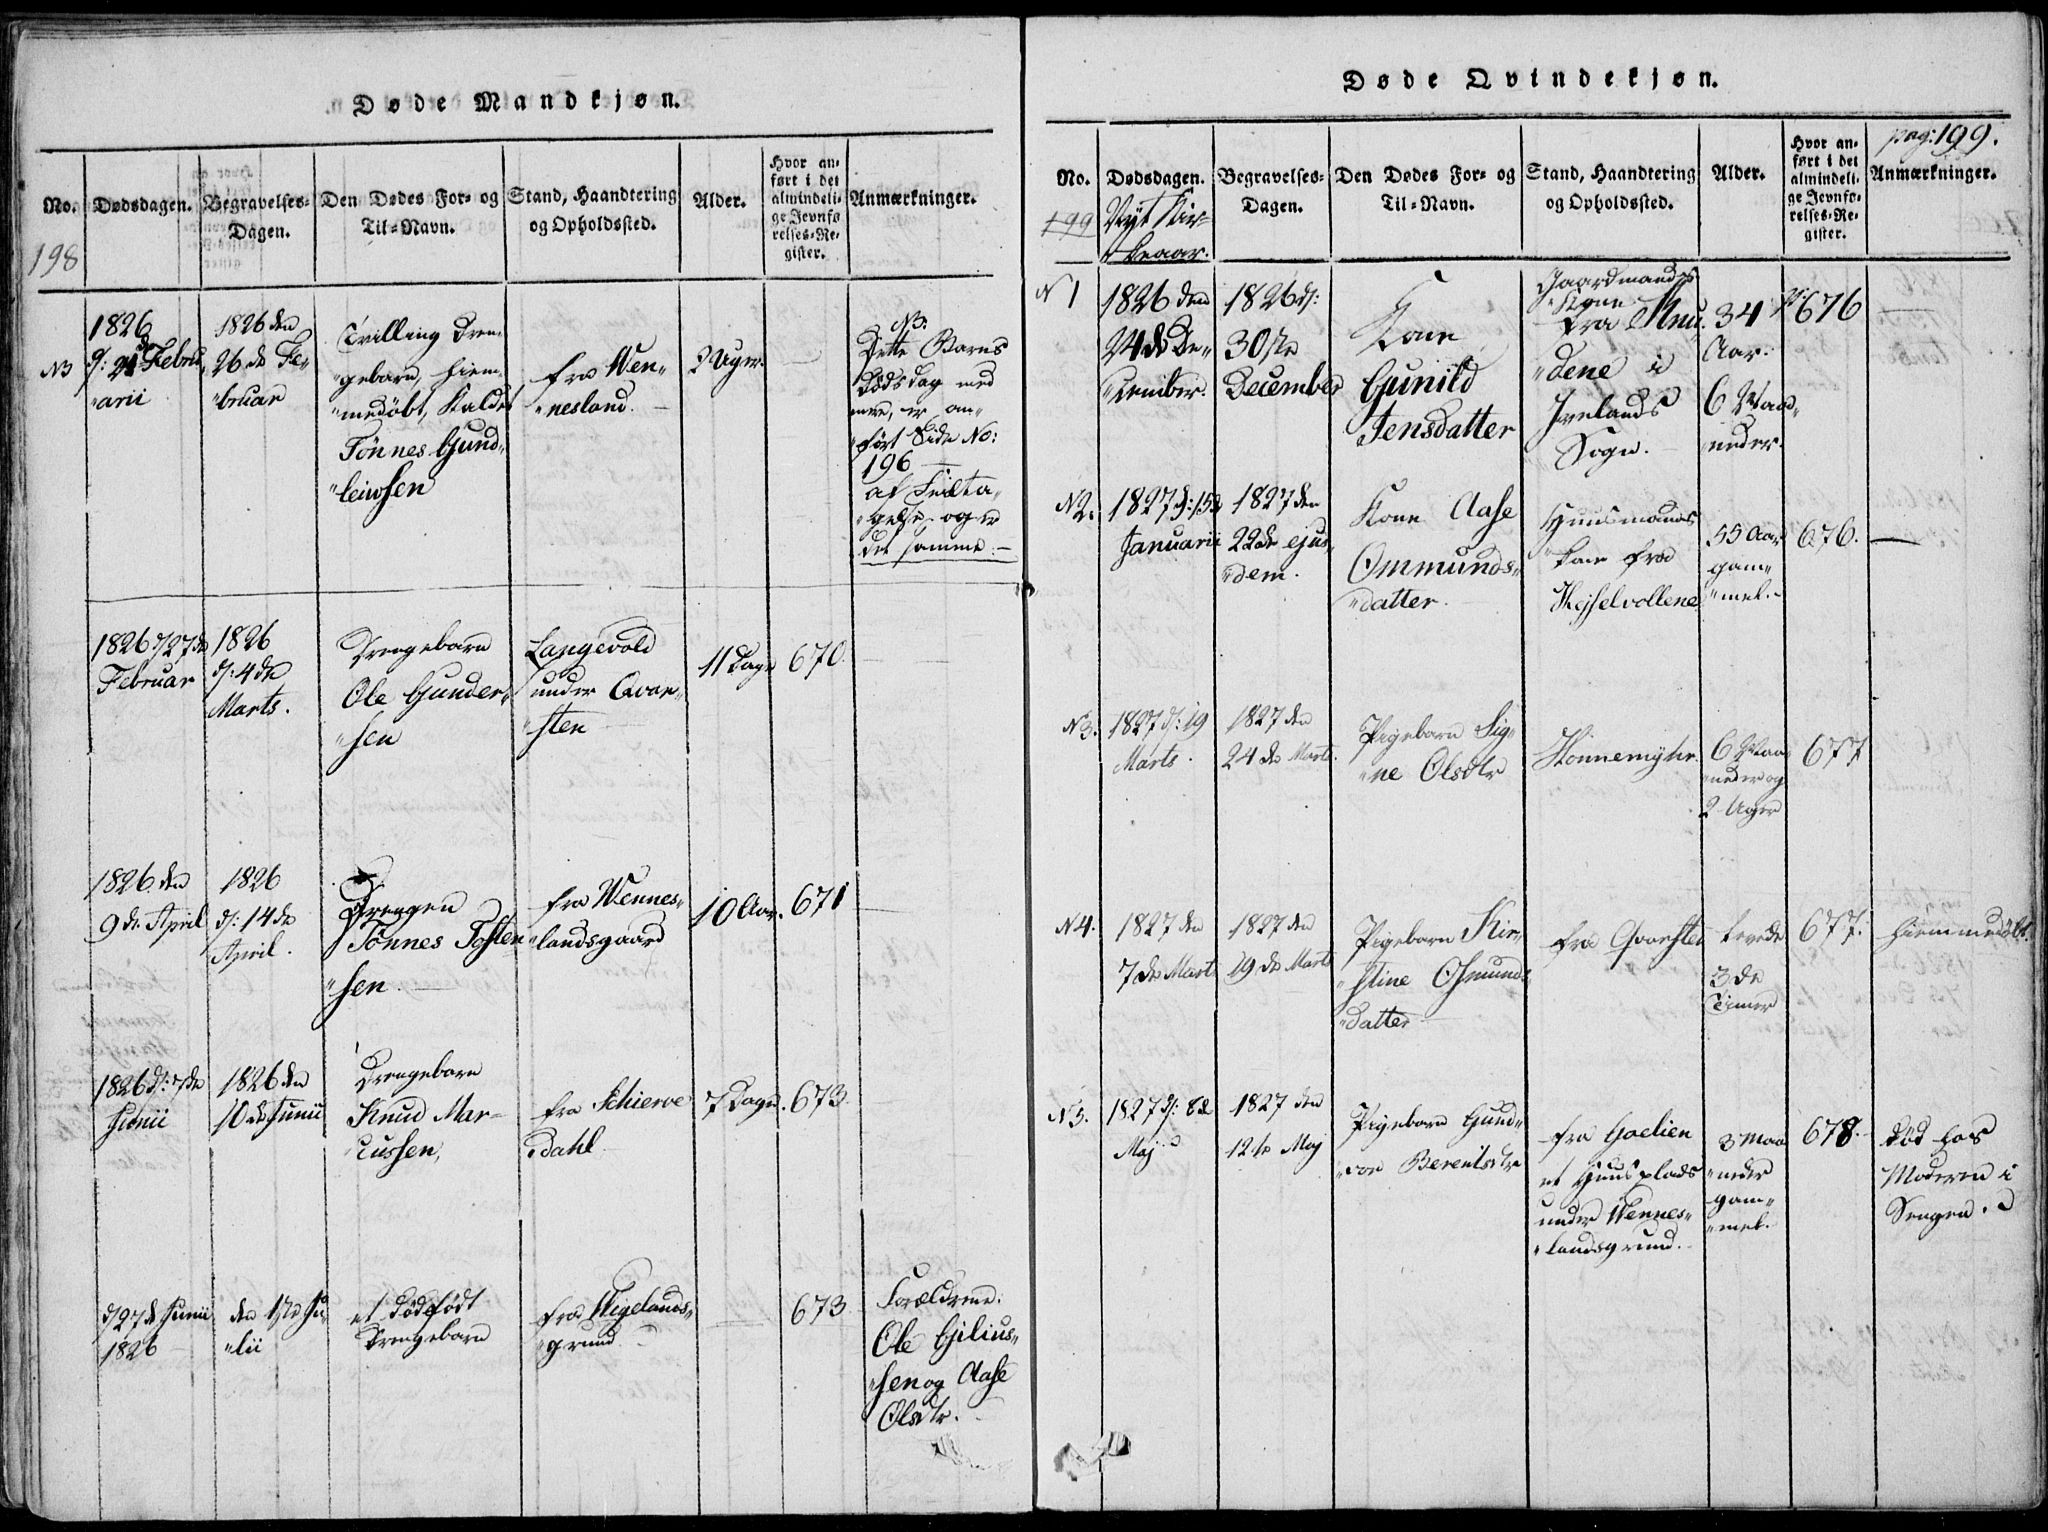 Døde Mandkjøn.
No.
Dødsdagen.
Begravelses-
Dagen.
Den Dødes For- og
Til-Navn.
Stand, Haandtering
og Opholdssted.
Alder.
Hvor an-
ført i det
almindeli-
ge Jevnfø-
relses-Re-
gister.
Anmærkninger.
198
1826
d: 21de Febru
"arii
1826 den
26de Fe-
"bruar
Tvilling Dren-
"gebarn, hiem-
"medøbt, Kaldet
Tönnes Gund-
"leivsen
fra Wen-
"nesland.
2 Uger.
NB.
Dette Barns
Dødsdag med
mere, er an-
"ført Side No:
196
af Friæta-
"gelse og er
det samme.
1826 d 27de
Februar
1826
d: 4de
Marts.
Drengebarn
Ole Gunder-
"sen
Langevold
under Qvar-
"sten
11 Dage
670.
1826 den
9de April
1826
d: 14de
April.
Drengen
Tönnes Tosten-
"sen.
fra Wennes-
"landsgaard
10 Aar.
671
1826 d: 7de
Junii
1826 den
10de Junii
Drengebarn
Knud Mar-
"cussen,
fra Schierve
"dahl.
7 Dage.
673
d 27de Junii
1826
den 1ste Ju-
"lii
et dödfödt
Drengebarn
fra Wigelands-
"grund
673
Forældrene:
Ole Gjilius-
"sen og Aase
Olsdtr.
Døde Qvindekjøn.
pag: 199.
No.
Dødsdagen.
Begravelses-
Dagen.
Den Dødes For- og
Til-Navn.
Stand, Haandtering
og Opholdssted.
Alder.
Hvor an-
ført i det
almindeli-
ge Jevnfø-
relses-Re-
gister.
Anmærkninger.
199
Nyt Kir-
keaar.
N 1
1826 den
24de De-
"cember.
1826 d:
30ste
December
Kone
Gunild
Jensdatter
Gaardmands
Kone
fra Knu-
"dene i
Ivelands
Sogn.
34
Aar.
6 Maa-
"neder.
676
N2.
1827 d: 15de
Januarii
1827 den
22de ejus-
"dem.
Kone Aase
Ommunds-
"datter.
Huusmands
kone fra
Hejselvollene
55 Aar
gam-
"mel.
676.
N3.
1827 d: 19
Marts.
1827 den
24de Marts.
Pigebarn Sig-
"ne Olsdtr
Honnemyhr.
6 Maa-
"neder og
2 Uger
677
N4.
1827 den
7de Mart
1827 den
19de Marts
Pigebarn Kir-
"stine Osmunds-
datter
fra Qvarsten
levede
3de
Timer
677.
hiemmedöbt.
N5.
1827 d: 8de
Maj
1827 den
12te Maj
Pigebarn Gund-
"vor Berentsdtr
fra Gaelien
et Huusplads
under Wennes-
"landsgrund.
3 Maa-
"neder
gam-
"mel.
678.
död hos
Moderen i
Sengen.